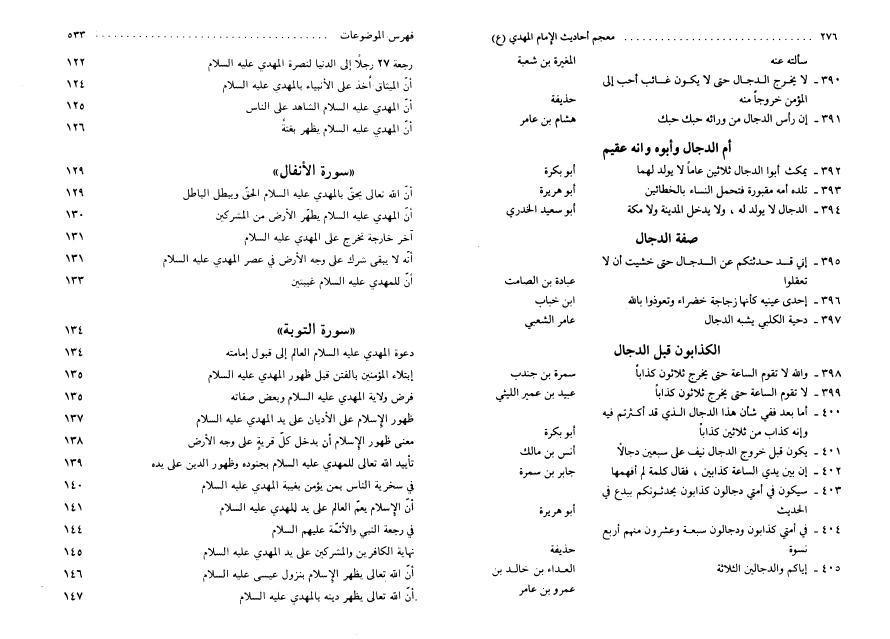 ٢٧٦ . . . . . . . . . . . . . . . . . . . . . . . . . . . . . معجم أحاديث الإمام المهدي (ع)
سألته عنه المغيرة بن شعبة
٣٩٠ ـ لا يخرج الدجال حتى لا يكون غائب أحب إلى
المؤمن خروجاً منه حذيفة
٣٩١ ـ إن رأس الدجال من ورائه حبك حبك هشام بن عامر
أم الدجال وأبوه وانه عقيم
٣٩٢ ـ يمكث أبوا الدجال ثلاثين عاماً لا يولد لهما أبو بكرة
٣٩٣ ـ تلده أمه مقبورة فتحمل النساء بالخطائين أبو هريرة
٣٩٤ ـ الدجال لا يولد له ، ولا يدخل المدينة ولا مكة أبو سعيد الخدري
صفة الدجال
٣٩٥ ـ إني قد حدثتكم عن الدجال حتى خشيت أن لا
تعقلوا عبادة بن الصامت
٣٩٦ ـ إحدى عينيه كأنها زجاجة خضراء وتعوذوا بالله ابن خباب
٣٩٧ ـ دحية الكلبي يشبه الدجال عامر الشعبي
الكذابون قبل الدجال
٣٩٨ ـ والله لا تقوم الساعة حتى يخرج ثلاثون كذاباً سمرة بن جندب
٣٩٩ ـ لا تقوم الساعة حتى يخرج ثلاثون كذاباً عبيد بن عمير الليثي
٤٠٠ ـ أما بعد ففي شأن هذا الدجال الذي قد أكثرتم فيه
وإنه كذاب من ثلاثين كذاباً أبو بكرة
٤٠١ ـ يكون قبل خروج الدجال نيف على سبعين دجالاً أنس بن مالك
٤٠٢ ـ إن بين يدي الساعة كذابين ، فقال كلمة لم أفهمها جابر بن سمرة
٤٠٣ ـ سيكون في أمتي دجالون كذابون يحدثونكم ببدع في
الحديث أبو هريرة
٤٠٤ ـ في أمتي كذابون ودجالون سبعة وعشرون منهم أربع
نسوة حذيفة
٤٠٥ ـ إياكم والدجالين الثلاثة العداء بن خالد بن
عمرو بن عامر
فهرس الموضوعات . . . . . . . . . . . . . . . . . . . . . . . . . . . . . . . . . . . . . ٥٣٣
رجعة ٢٧ رجلاً إلى الدنيا لنصرة المهدي عليه السلام ١٢٢
أنّ الميثاق أُخذ على الأنبياء بالمهدي عليه السلام ١٢٤
أنّ المهدي عليه السلام الشاهد على الناس ١٢٥
أنّ المهدي عليه السلام يظهر بغتةً ١٢٦
«سورة الأنفال» ١٢٩
أنّ الله تعالى يحقّ بالمهدي عليه السلام الحقّ ويبطل الباطل ١٢٩
أنّ المهدي عليه السلام يطهّر الأرض من المشركين ١٣٠
آخر خارجة تخرج على المهدي عليه السلام ١٣١
أنّه لا يبقى شرك على وجه الأرض في عصر المهدي عليه السلام ١٣١
أنّ للمهدي عليه السلام غيبتين ١٣٣
«سورة التوبة» ١٣٤
دعوة المهدي عليه السلام العالم إلى قبول إمامته ١٣٤
إبتلاء المؤمنين بالفتن قبل ظهور المهدي عليه السلام ١٣٥
فرض ولاية المهدي عليه السلام وبعض صفاته ١٣٥
ظهور الإسلام على الأديان على يد المهدي عليه السلام ١٣٧
معنى ظهور الإسلام أن يدخل كلّ قرية على وجه الأرض ١٣٨
تأييد الله تعالى للمهدي عليه السلام بجنوده وظهور الدين على يده ١٣٩
في سخرية الناس بمن يؤمن بغيبة المهدي عليه السلام ١٤٠
أنّ الإسلام يعمّ العالم على يد المهدي عليه السلام ١٤١
في رجعة النبي والأئمّة عليهم السلام ١٤٤
نهاية الكافرين والمشركين على يد المهدي عليه السلام ١٤٥
أنّ الله تعالى يظهر الإسلام بنزول عيسى عليه السلام ١٤٦
أنّ الله تعالى يظهر دينه بالمهدي عليه السلام ١٤٧